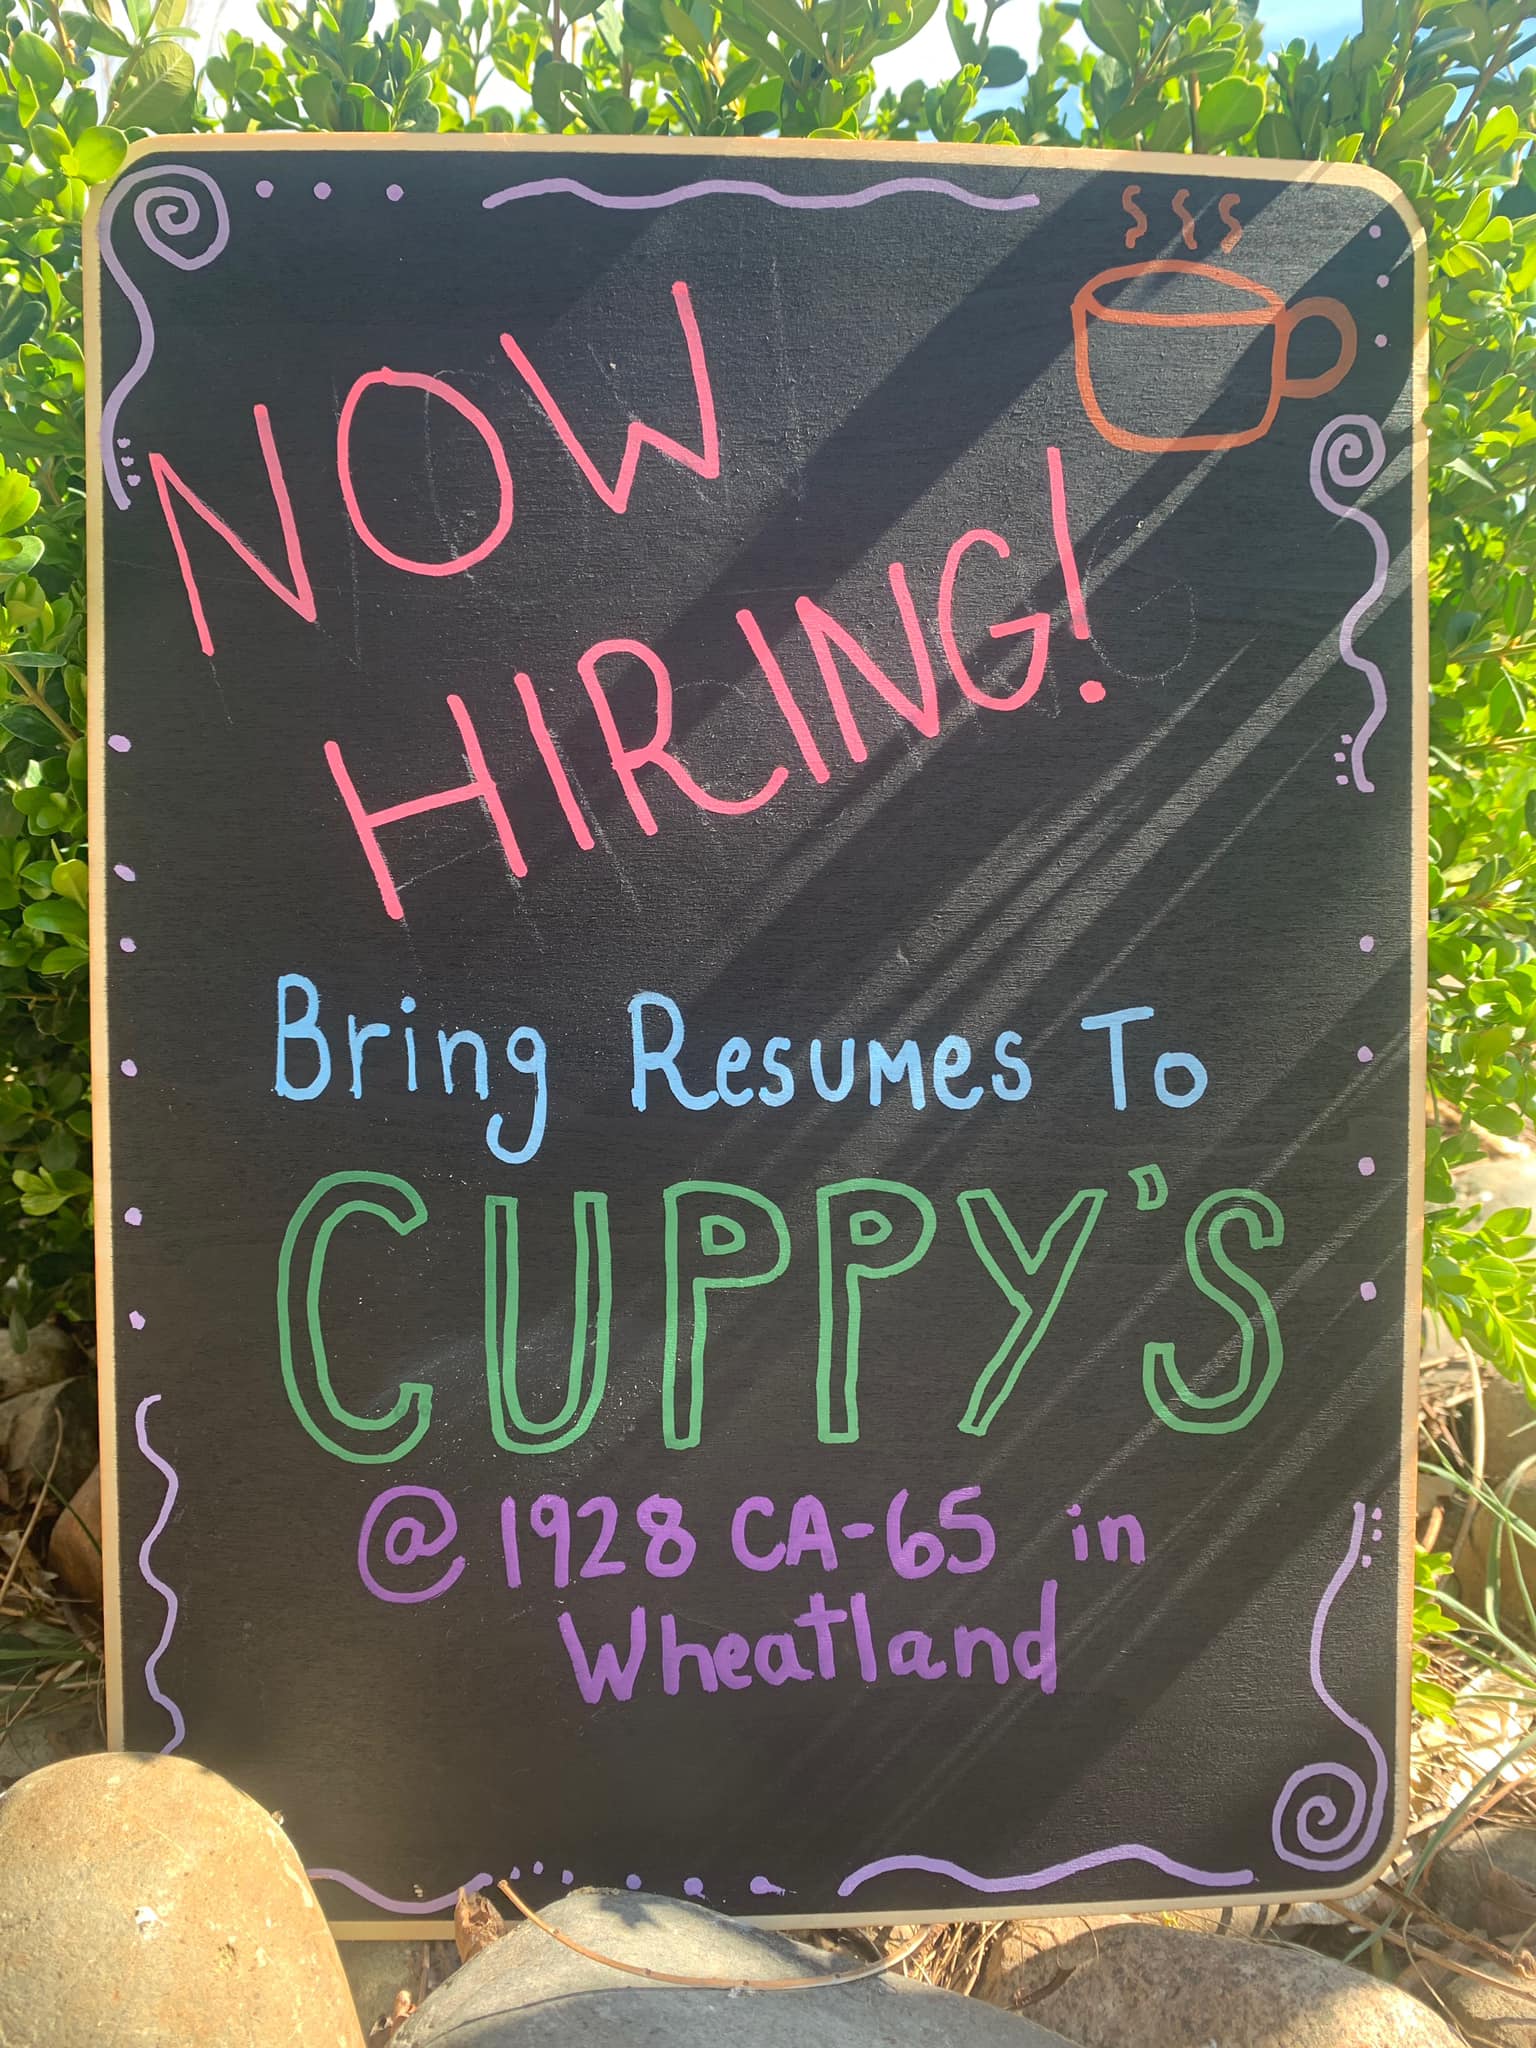 NOW
HIRING!
Bring Resumes To
CUPPY'S
@ 1928 CA-65 in
Wheatland